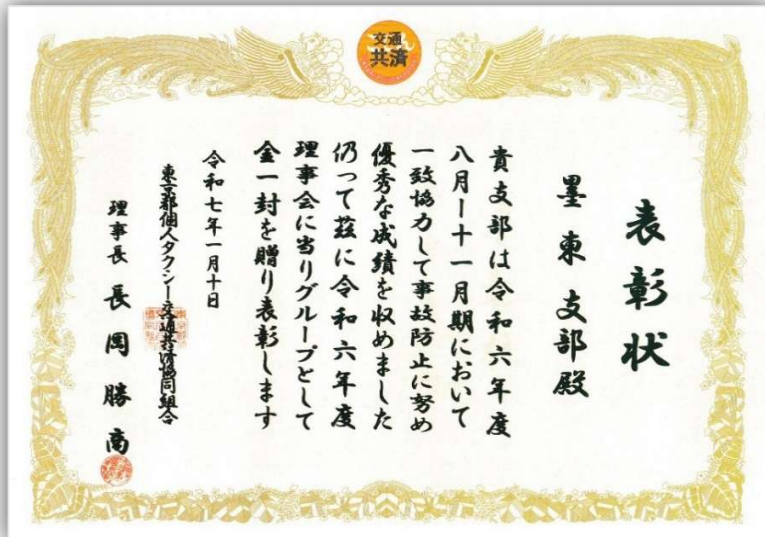 交通
共済
表彰状
墨東支部殿
貴支部は令和六年度
八月ー十一月期において
一致協力して事故防止に努め
優秀な成績を収めました
仍って茲に令和六年度
理事会に当りグループとして
金一封を贈り表彰します
令和七年一月十日
東京都個人タクシー交通共済協同組合
理事長 長岡勝商